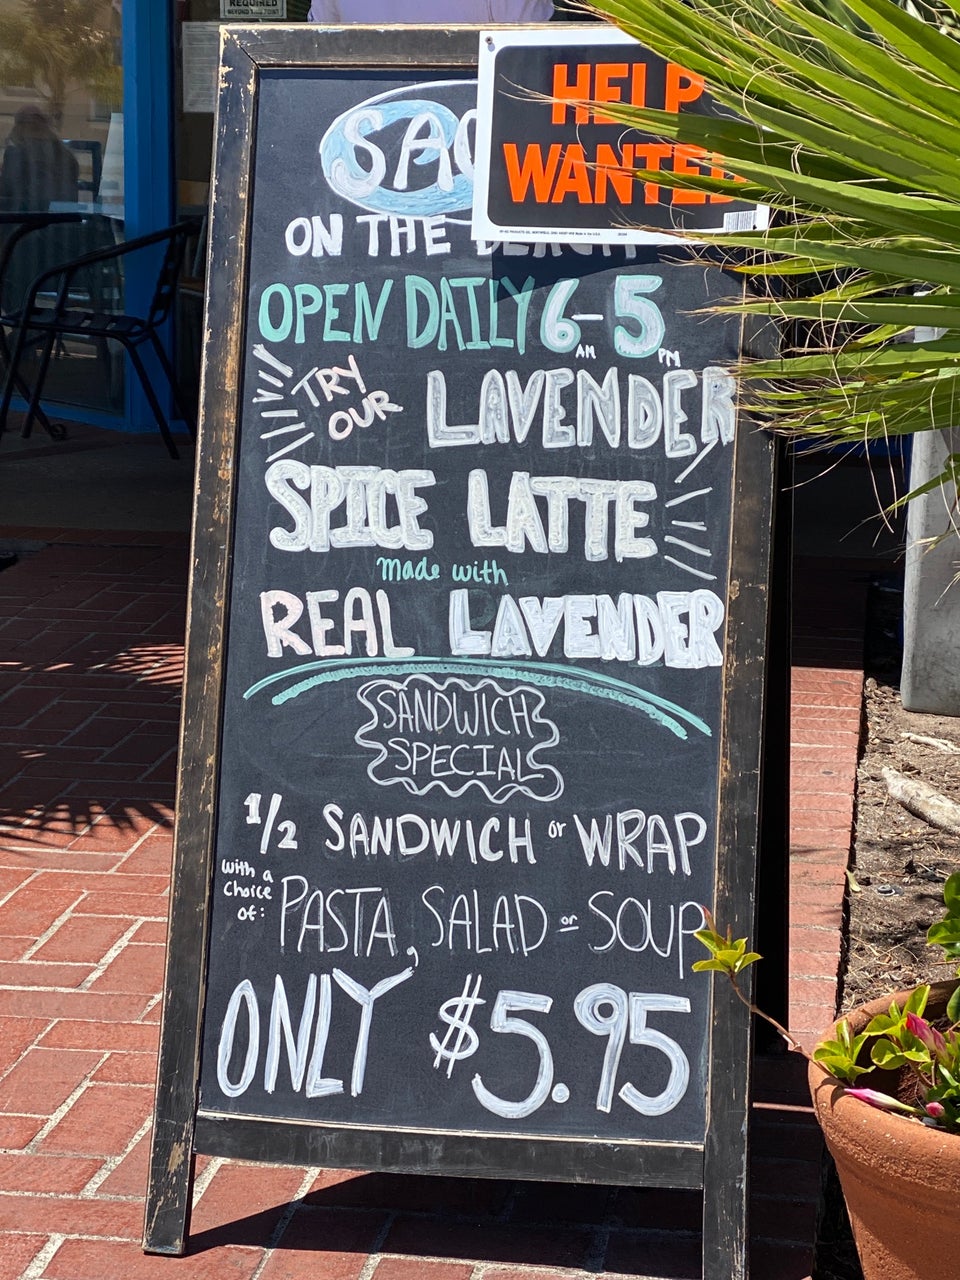 REQUIRED
BEYOND THIS POINT
HELP
WANTED
ON THE BEACH
OPEN DAILY 6AM-5PM
TRY OUR LAVENDER
SPICE LATTE
made with
REAL LAVENDER
SANDWICH
SPECIAL
1/2 SANDWICH or WRAP
with a choice of: PASTA, SALAD or SOUP
ONLY $5.95